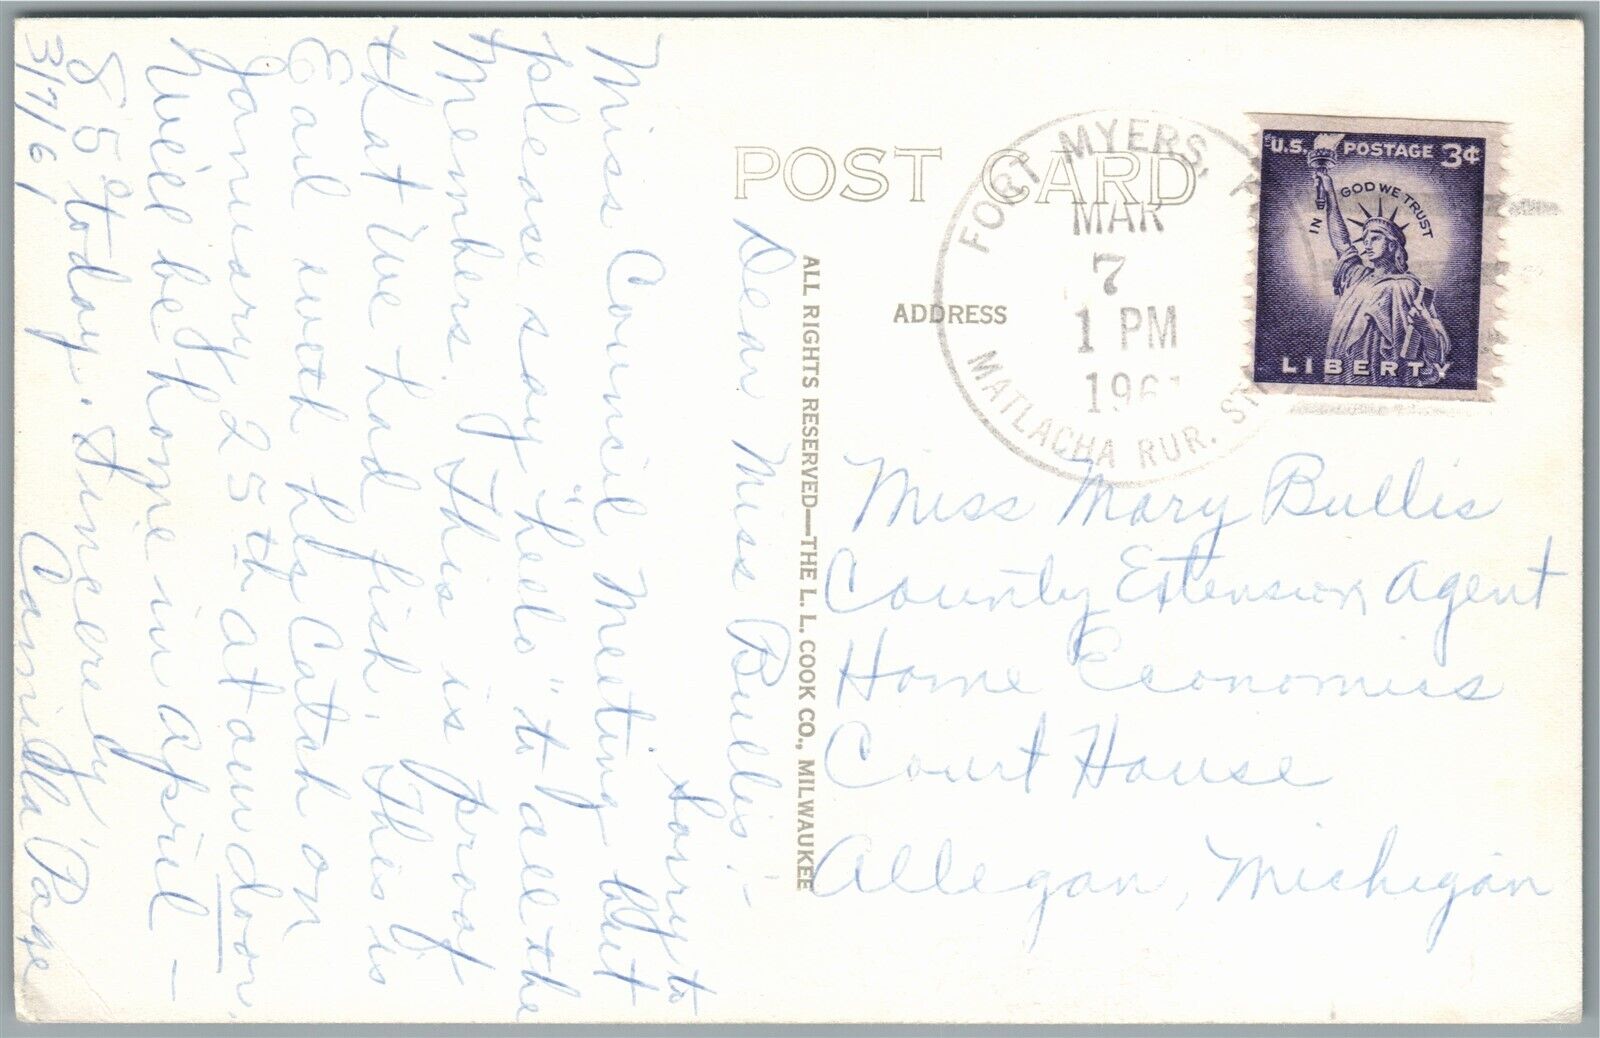 POST CARD
ADDRESS
ALL RIGHTS RESERVED—THE L. L. COOK CO., MILWAUKEE
FORT MYERS,
MAR
7
1 PM
196
MATLACHA RUR. ST
U.S. POSTAGE 3¢
IN GOD WE TRUST
LIBERTY
Miss Mary Bullis
County Extension Agent
Home Economics
Court House
Allegan, Michigan
Dear Miss Bullis:-
Sorry to
Miss Council Meeting but
please say "hello" to all the
Members. This is proof
that we had fish. This is
Earl with his Catch on
January 25th at our door.
We'll be home in April -
85° today. Sincerely
3/7/61 Camilla Page